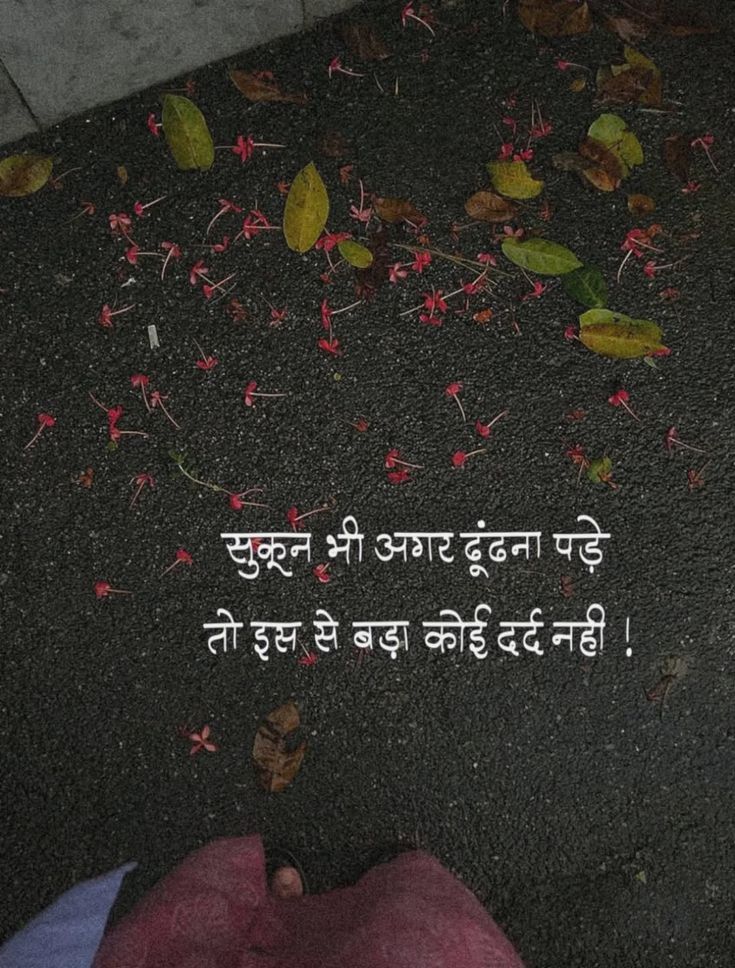 सुकून भी अगर ढूंढना पड़े
तो इस से बड़ा कोई दर्द नही !